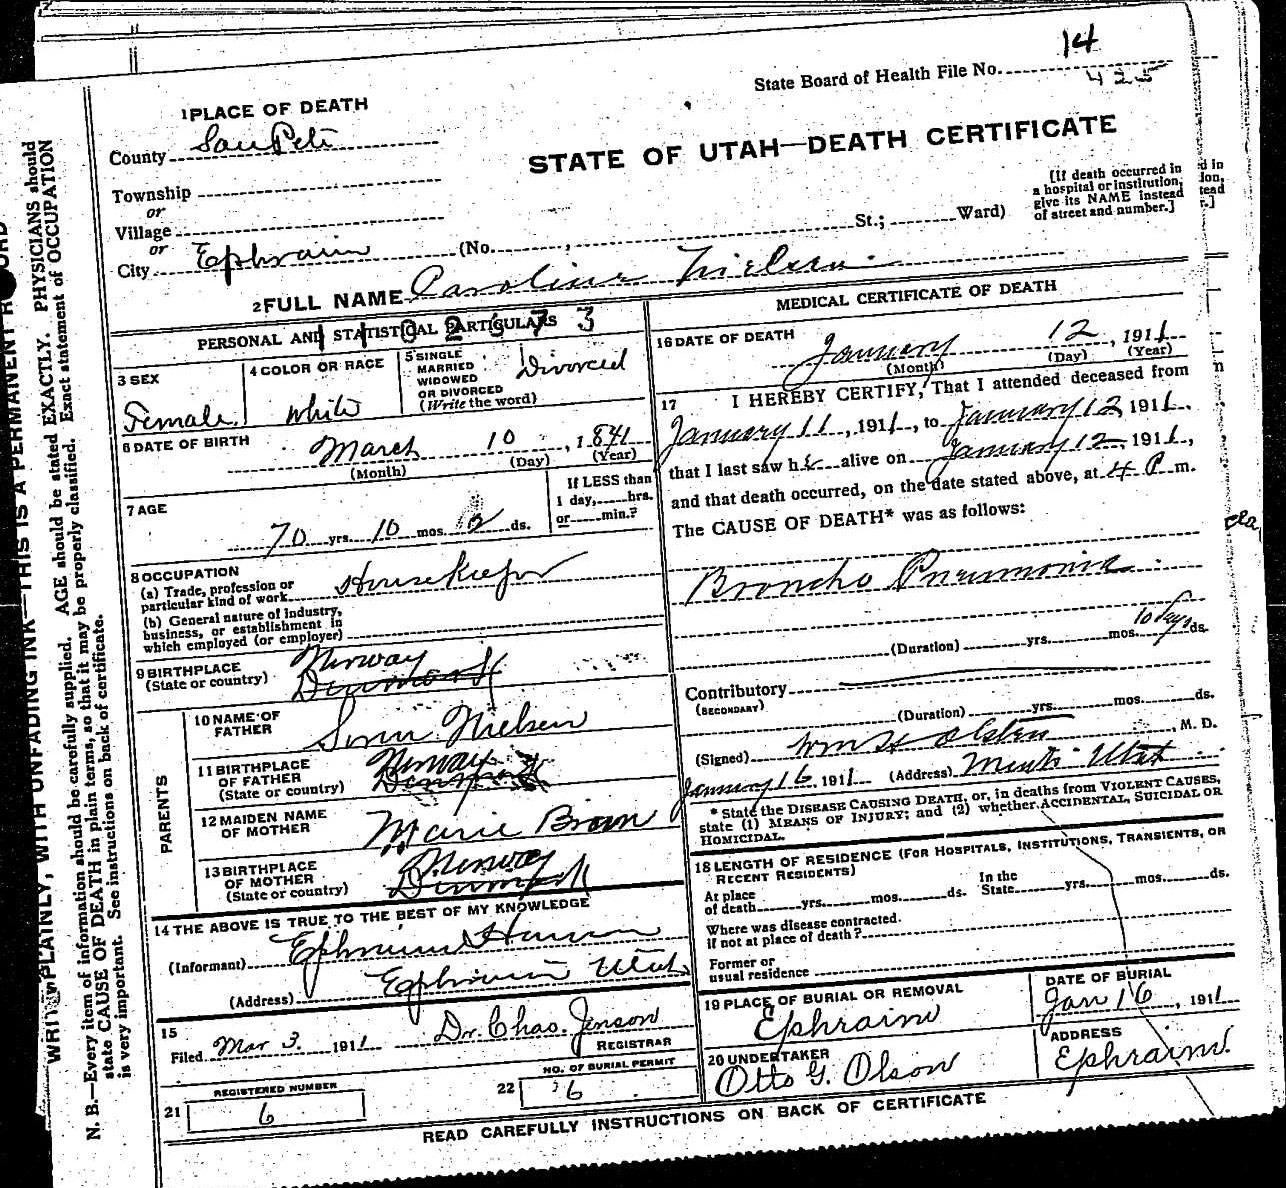 14
State Board of Health File No. 425
1 PLACE OF DEATH
County San Pete
STATE OF UTAH—DEATH CERTIFICATE
Township
or
Village
or
City Ephraim (No. , St.; Ward)
[If death occurred in
a hospital or institution,
give its NAME instead
of street and number.]
2 FULL NAME Caroline Nielsen
PERSONAL AND STATISTICAL PARTICULARS
3 SEX
Female
4 COLOR OR RACE
White
5 SINGLE
MARRIED
WIDOWED
OR DIVORCED
(Write the word)
Divorced
6 DATE OF BIRTH
March 10, 1841
(Month) (Day) (Year)
7 AGE
70 yrs. 10 mos. 2 ds.
If LESS than
1 day, hrs.
or min.?
8 OCCUPATION
(a) Trade, profession or
particular kind of work Housekeeper
(b) General nature of industry,
business, or establishment in
which employed (or employer)
9 BIRTHPLACE
(State or country)
Norway
Denmark
PARENTS
10 NAME OF
FATHER
Nielsen
11 BIRTHPLACE
OF FATHER
(State or country)
Norway
Denmark
12 MAIDEN NAME
OF MOTHER
Marie
13 BIRTHPLACE
OF MOTHER
(State or country)
Norway
Denmark
14 THE ABOVE IS TRUE TO THE BEST OF MY KNOWLEDGE
(Informant) Ephraim Hansen
(Address) Ephraim Utah
15
Filed Mar 3. 1911 Dr. Chas. Jenson
REGISTRAR
21 REGISTERED NUMBER
6
22 NO. OF BURIAL PERMIT
6
MEDICAL CERTIFICATE OF DEATH
16 DATE OF DEATH
January 12, 1911
(Month) (Day) (Year)
17 I HEREBY CERTIFY, That I attended deceased from
January 11, 1911, to January 12 1911.
that I last saw her alive on January 12, 1911,
and that death occurred, on the date stated above, at 4 P m.
The CAUSE OF DEATH* was as follows:
Broncho Pneumonia.
(Duration) yrs. mos. 10 days ds.
Contributory
(SECONDARY)
(Duration) yrs. mos. ds.
(Signed) Wm H Olsten, M. D.
January 16, 1911 (Address) Manti Utah
* State the DISEASE CAUSING DEATH, or, in deaths from VIOLENT CAUSES,
state (1) MEANS OF INJURY; and (2) whether ACCIDENTAL, SUICIDAL OR
HOMICIDAL.
18 LENGTH OF RESIDENCE (FOR HOSPITALS, INSTITUTIONS, TRANSIENTS, OR
RECENT RESIDENTS)
At place
of death yrs. mos. ds.
In the
State yrs. mos. ds.
Where was disease contracted.
if not at place of death?
Former or
usual residence
19 PLACE OF BURIAL OR REMOVAL
Ephraim
DATE OF BURIAL
Jan 16, 1911
20 UNDERTAKER
Otto G. Olson
ADDRESS
Ephraim.
READ CAREFULLY INSTRUCTIONS ON BACK OF CERTIFICATE
WRITE PLAINLY, WITH UNFADING INK—THIS IS A PERMANENT RECORD
N. B.—Every item of information should be carefully supplied. AGE should be stated EXACTLY. PHYSICIANS should
state CAUSE OF DEATH in plain terms, so that it may be properly classified. Exact statement of OCCUPATION
is very important. See instructions on back of certificate.